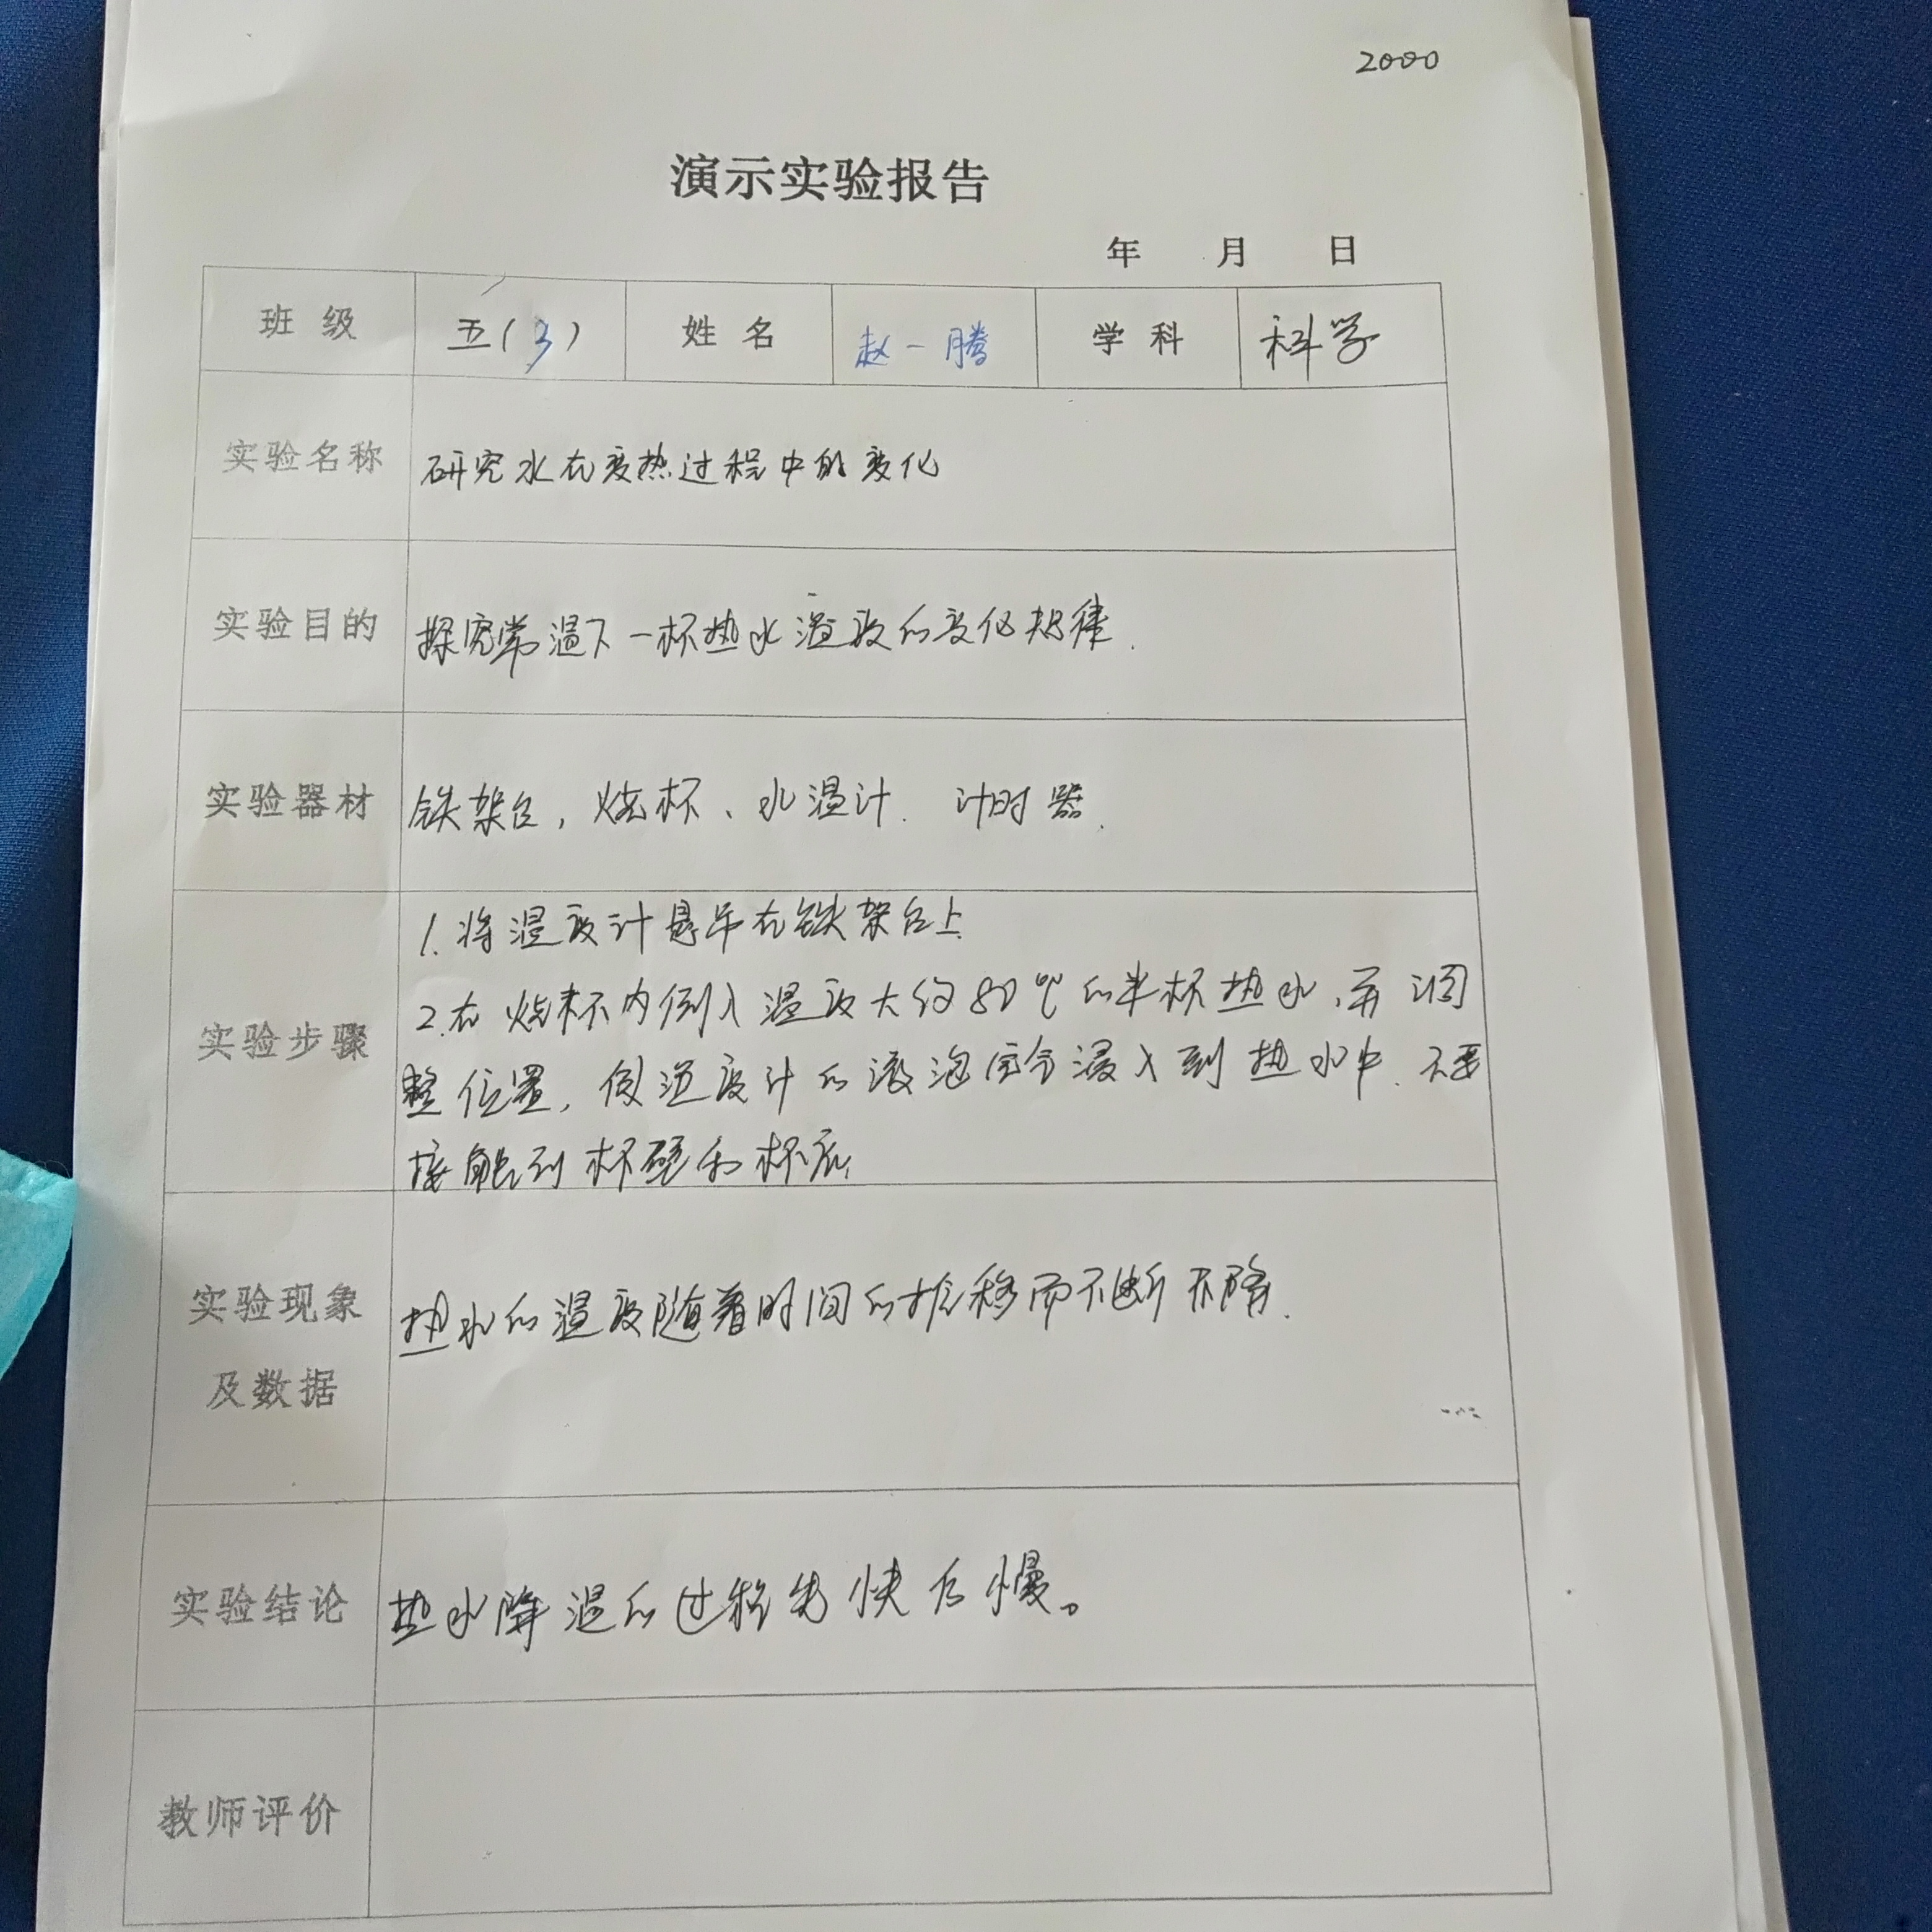 2000
演示实验报告
年 月 日
班 级 五(3) 姓 名 赵一腾 学 科 科学
实验名称 研究水在变热过程中的变化
实验目的 探究常温下一杯热水温度的变化规律.
实验器材 铁架台, 烧杯、水温计. 计时器.
实验步骤
1.将温度计悬吊在铁架台上
2.在烧杯内倒入温度大约80℃的半杯热水,并调
整位置,使温度计的液泡完全浸入到热水中.不要
接触到杯壁和杯底,
实验现象
及数据
热水的温度随着时间的推移而不断下降.
实验结论 热水降温的过程先快后慢。
教师评价